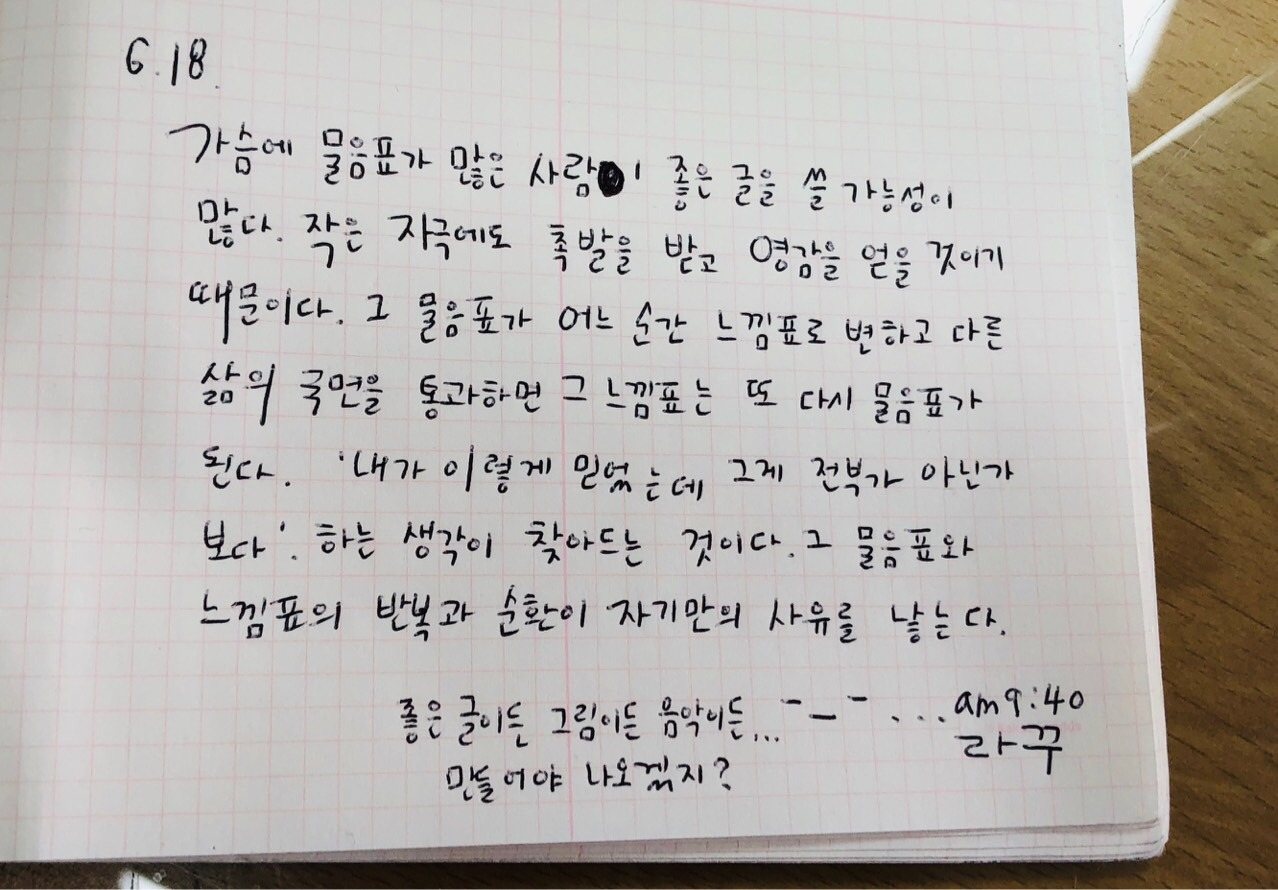 6.18.
가슴에 물음표가 많은 사람이 좋은 글을 쓸 가능성이
많다. 작은 자극에도 촉발을 받고 영감을 얻을 것이기
때문이다. 그 물음표가 어느 순간 느낌표로 변하고 다른
삶의 국면을 통과하면 그 느낌표는 또 다시 물음표가
된다. '내가 이렇게 믿었는데 그게 전부가 아닌가
보다'. 하는 생각이 찾아드는 것이다. 그 물음표와
느낌표의 반복과 순환이 자기만의 사유를 낳는다.
좋은 글이든 그림이든 음악이든... - - - ... am 9:40
만들어야 나오겠지? 라꾸